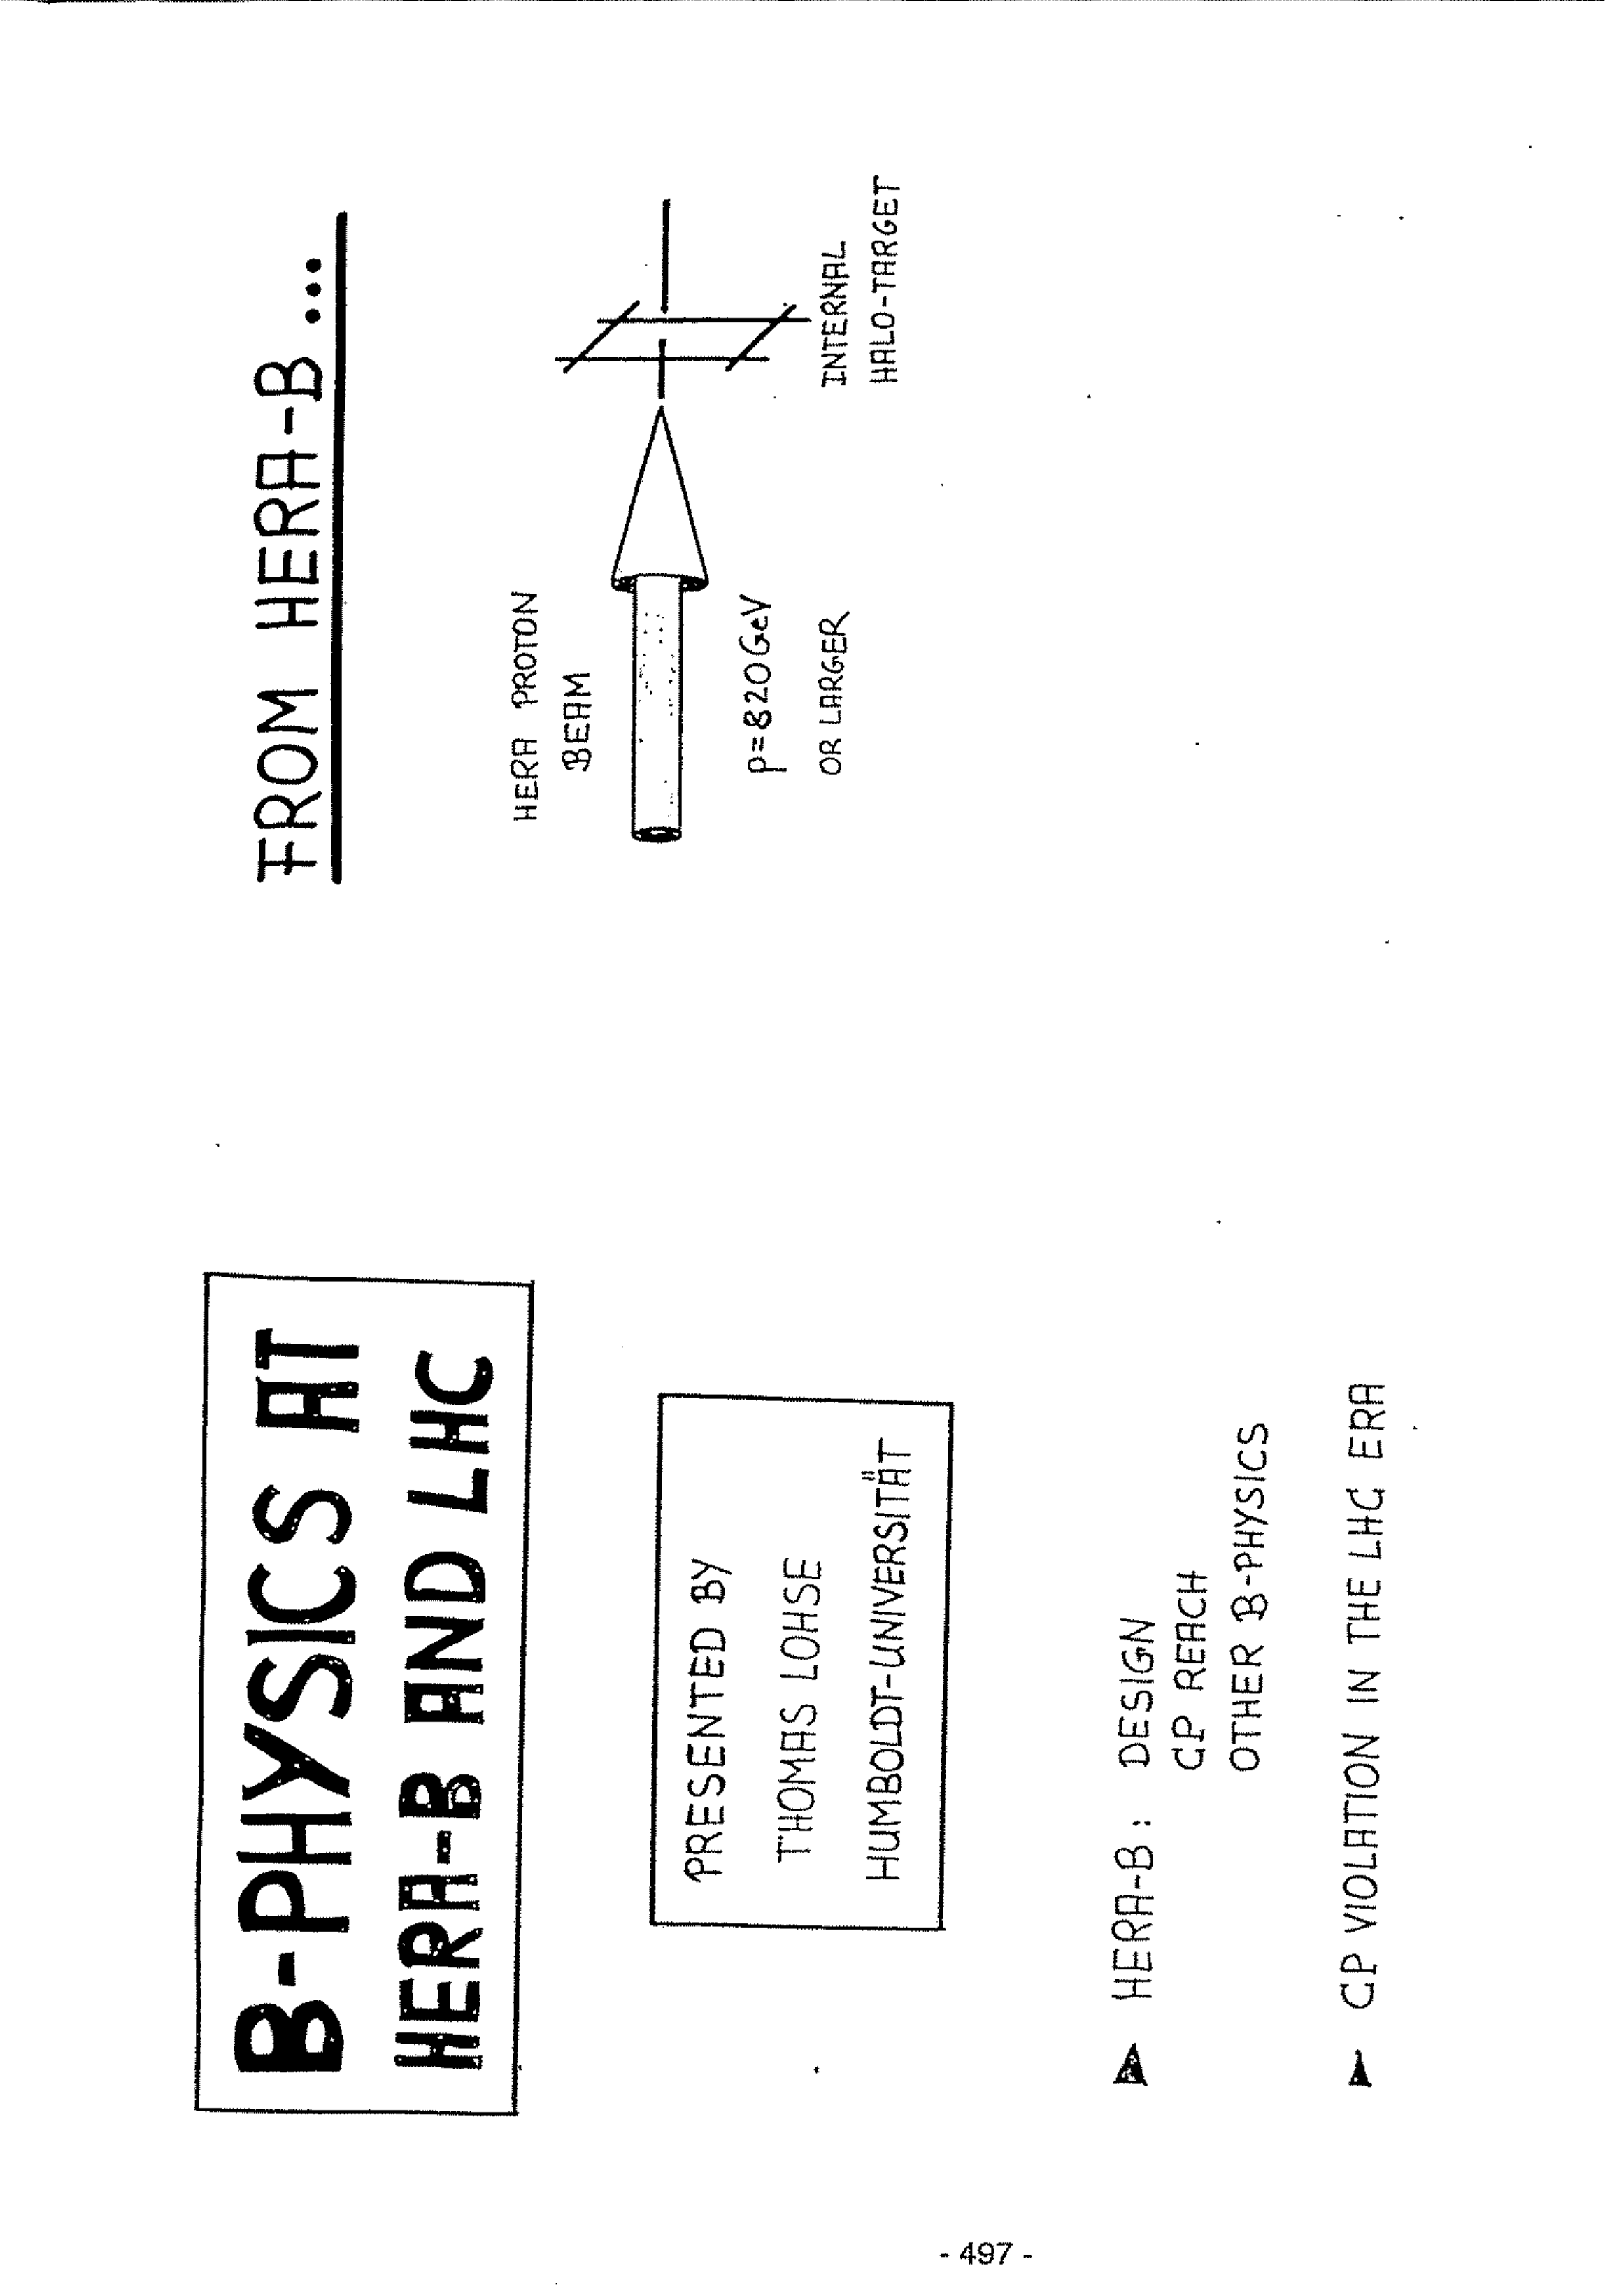 B-PHYSICS AT
HERA-B AND LHC
PRESENTED BY
THOMAS LOHSE
HUMBOLDT-UNIVERSITÄT
HERA-B: DESIGN
CP REACH
OTHER B-PHYSICS
CP VIOLATION IN THE LHC ERA
FROM HERA-B...
HERA PROTON
BEAM
p=820GeV
OR LARGER
INTERNAL
HALO-TARGET
- 497 -